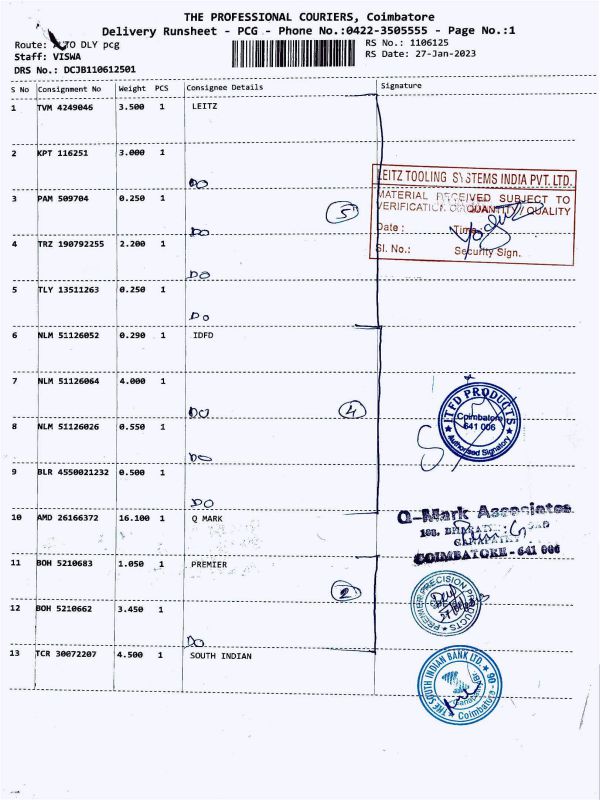 THE PROFESSIONAL COURIERS, Coimbatore
Delivery Runsheet - PCG - Phone No.:0422-3505555 - Page No.:1
Route: ALTO DLY pcg
RS No.: 1106125
Staff: VISWA
RS Date: 27-Jan-2023
DRS No.: DCJB110612501
S No Consignment No Weight PCS Consignee Details Signature
1 TVM 4249046 3.500 1 LEITZ
2 KPT 116251 3.000 1
DO
LEITZ TOOLING SYSTEMS INDIA PVT. LTD.
MATERIAL RECEIVED SUBJECT TO
VERIFICATION OF QUANTITY / QUALITY
Date : Time:
Sl. No.: Security Sign.
3 PAM 509704 0.250 1
5
DO
4 TRZ 190792255 2.200 1
DO
5 TLY 13511263 0.250 1
DO
6 NLM 51126052 0.290 1 IDFD
7 NLM 51126064 4.000 1
DO
4
ITFD PRODUCTS
Coimbatore
641 006
Authorised Signatory
8 NLM 51126026 0.550 1
DO
9 BLR 4550021232 0.500 1
DO
10 AMD 26166372 16.100 1 Q MARK
Q-Mark Associates
COIMBATORE - 641 006
11 BOH 5210683 1.050 1 PREMIER
2
PREMIER PRECISION PRODUCTS
12 BOH 5210662 3.450 1
DO
13 TCR 30072207 4.500 1 SOUTH INDIAN
THE SOUTH INDIAN BANK LTD.
Ganapathy
Coimbatore - 06